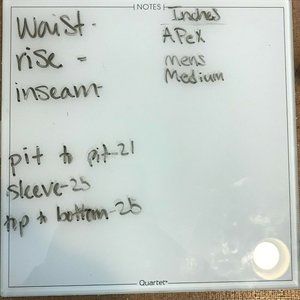 NOTES
Waist-
rise -
inseam-
Inches
APeX
mens
Medium
pit to pit-21
sleeve-25
top to bottom-26
Quartet